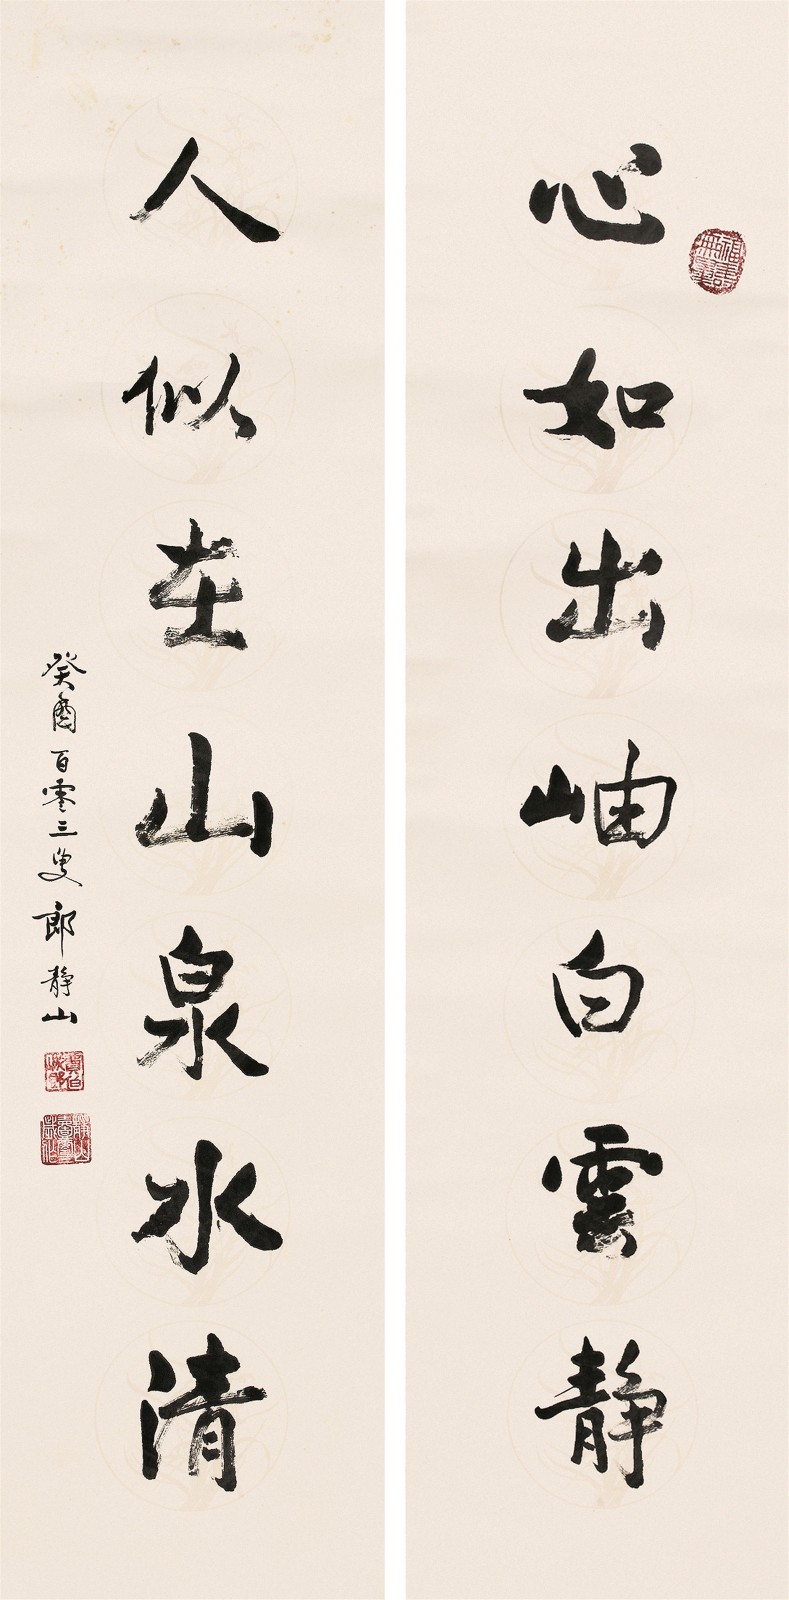 心如出岫白雲靜
人似在山泉水清
癸酉百零三叟郎靜山